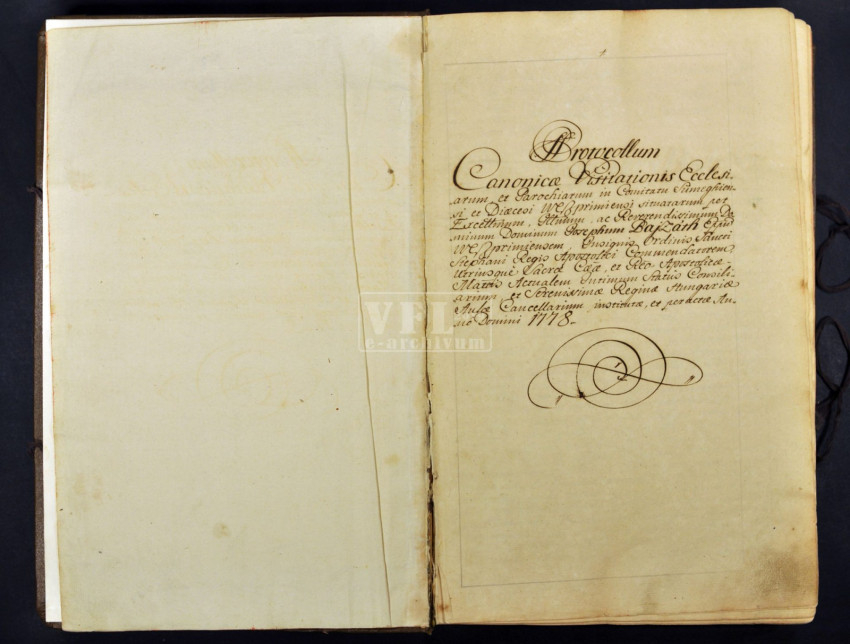 Protocollum
Canonicæ Visitationis Ecclesi-
arum, et Parochiarum in Comitatu Simeghien-
si et Diæcesi WeSzprimiensi situatarum per
Excellmum, Illmum, ac Reverendissimum Do-
minum Dominum Josephum BajZáth Eppu
WeSzprimiensem, Insignis Ordinis Sancti
Stephani Regis Apostolici Commendatorem
Utriusque Sacræ Cæsæ, et Reæ Apostolicæ-
Mattis Actualem Intimum Status Consili-
arium, et Serenissimæ Reginæ Hungariæ
Aulæ Cancellarium, institutæ, et peractæ An-
no Domini 1778.
VFL
e-archivum